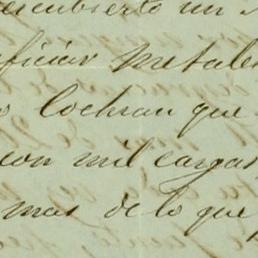 descubierto un
ficiar metales
Cochran que
con mil cargas
mas de lo que